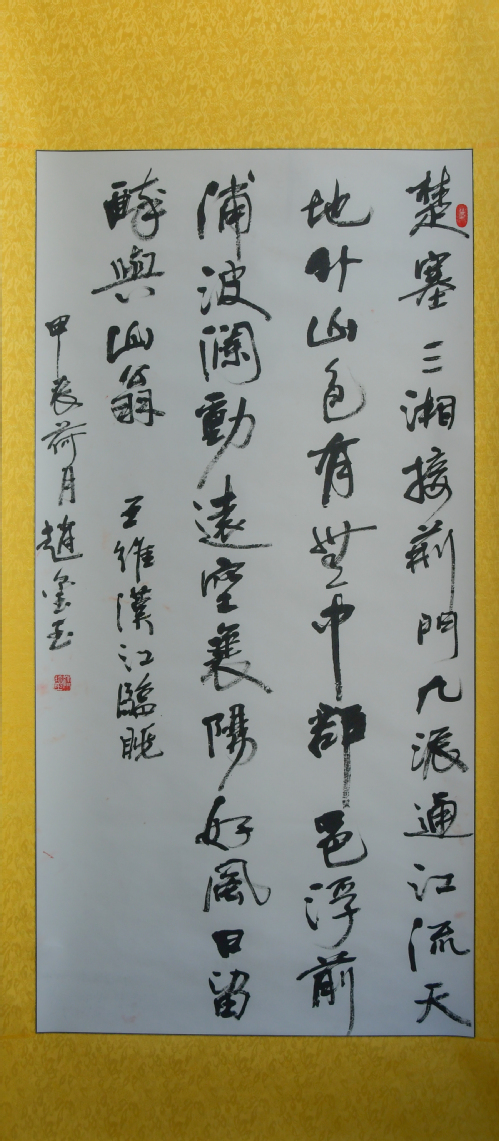 楚塞三湘接荊門九派通江流天
地外山色有無中郡邑浮前
浦波瀾動遠空襄陽好風日留
醉與山翁 王維漢江臨眺
甲辰荷月趙玉